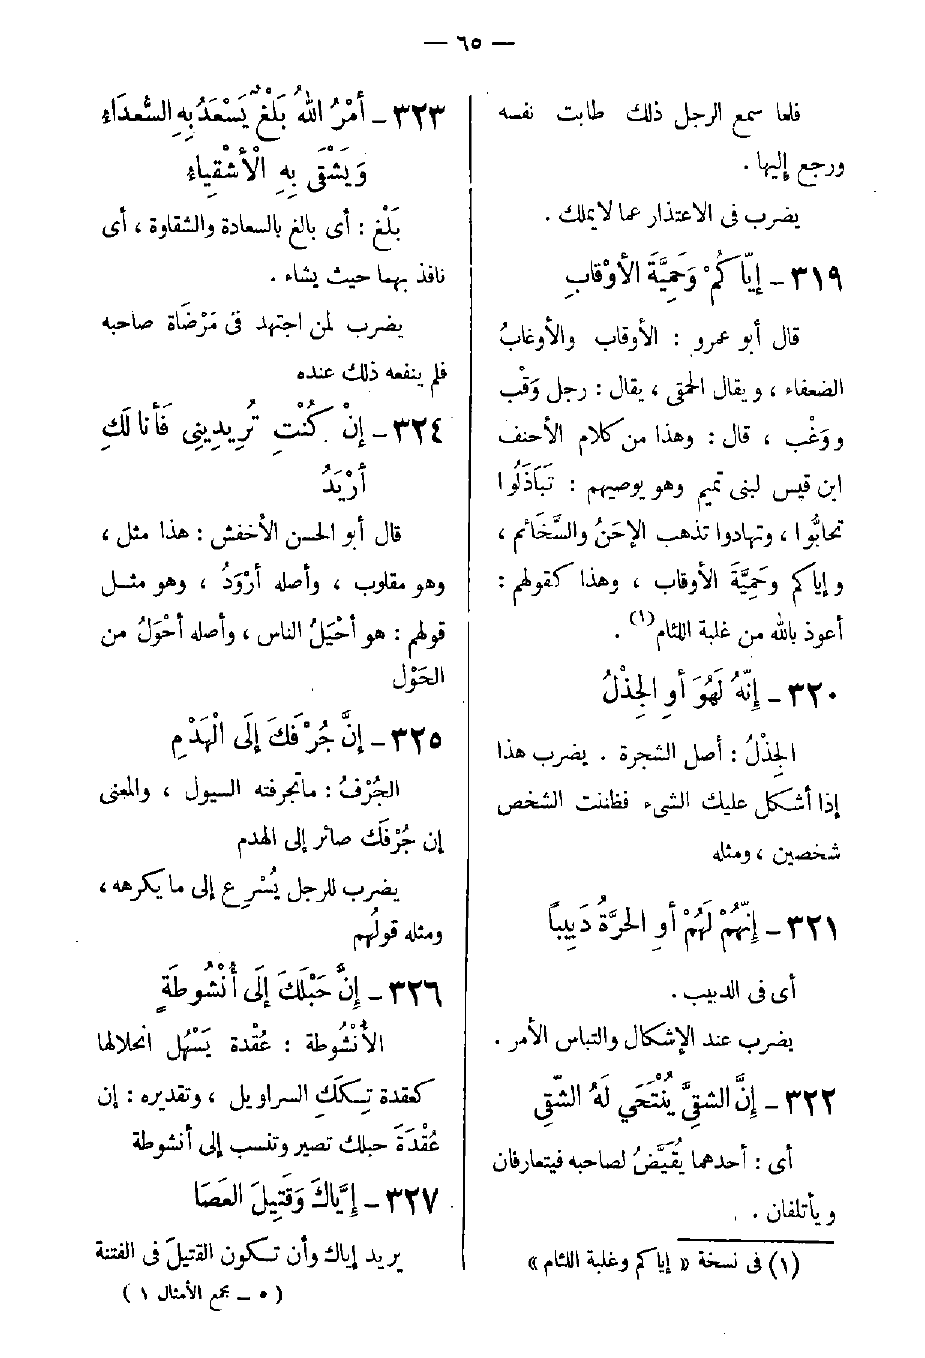 — ٦٥ —
فلما سمع الرجل ذلك طابت نفسه
ورجع إليها .
يضرب فى الاعتذار عما لا يملك .
٣١٩ – إيَّاكُمْ وَحَمِيَّةَ الأوْقَابِ
قال أبو عمرو : الأوقاب والأوغابُ
الضعفاء ، ويقال الحمقى ، يقال : رجل وَقْب
ووَغْب ، قال : وهذا من كلام الأحنف
ابن قيس لبنى تميم وهو يوصيهم : تَبَاذَلُوا
تحابُّوا ، وتهادوا تذهب الإحَنُ والسَّخَائم ،
وإياكم وحَمِيَّةَ الأوقاب ، وهذا كقولهم :
أعوذ بالله من غلبة اللئام (١) .
٣٢٠ – إنَّهُ لَهُوَ أوِ الجِذْلُ
الجِذْلُ : أصل الشجرة . يضرب هذا
إذا أشكل عليك الشىء فظننت الشخص
شخصين ، ومثله
٣٢١ – إنَّهُمْ لَهُمْ أوِ الحرَّةُ دَبِيباً
أى فى الدبيب .
يضرب عند الإشكال والتباس الأمر .
٣٢٢ – إنَّ الشقِيَّ يُنْتَحَي لَهُ الشّقِى
أى : أحدهما يُقَيَّضُ لصاحبه فيتعارفان
ويأتلفان .
(١) فى نسخة « إياكم وغلبة اللئام »
٣٢٣ – أمْرُ اللهُ بَلْغٌ يَسْعَدُ بِهِ السُّعَدَاءُ
وَيَشْقَى بِهِ الْأشْقِيَاءُ
بَلْغ : أى بالغ بالسعادة والشقاوة ، أى
نافذ بهما حيث يشاء .
يضرب لمن اجتهد فى مَرْضَاة صاحبه
فلم ينفعه ذلك عنده
٣٢٤ – إنْ كُنْتِ تُرِيدِينِى فَأنا لَكِ
أرْيَدُ
قال أبو الحسن الأخفش : هذا مثل ،
وهو مقلوب ، وأصله أرْوَدُ ، وهو مثل
قولهم : هو أحْيَلُ الناس ، وأصله أحْوَلُ من
الحَوْل
٣٢٥ – إنَّ جُرْفَكَ إلَى الْهَدْمِ
الجُرْفُ : ما تجرفته السيول ، والمعنى
إن جُرْفَك صائر إلى الهدم
يضرب للرجل يُسْرِع إلى ما يكرهه ،
ومثله قولُهم
٣٢٦ – إنَّ حَبْلَكَ إلَى أُنْشُوطَةٍ
الأُنْشُوطة : عُقْدة يَسْهُل انحلالها
كعقدة تِكَكِ السراويل ، وتقديره : إن
عُقْدَةَ حبلك تصير وتنسب إلى أنشوطة
٣٢٧ – إيَّاكَ وَقَتِيلَ العَصَا
يريد إياك وأن تكون القتيلَ فى الفتنة
( ٥ – مجمع الأمثال ١ )